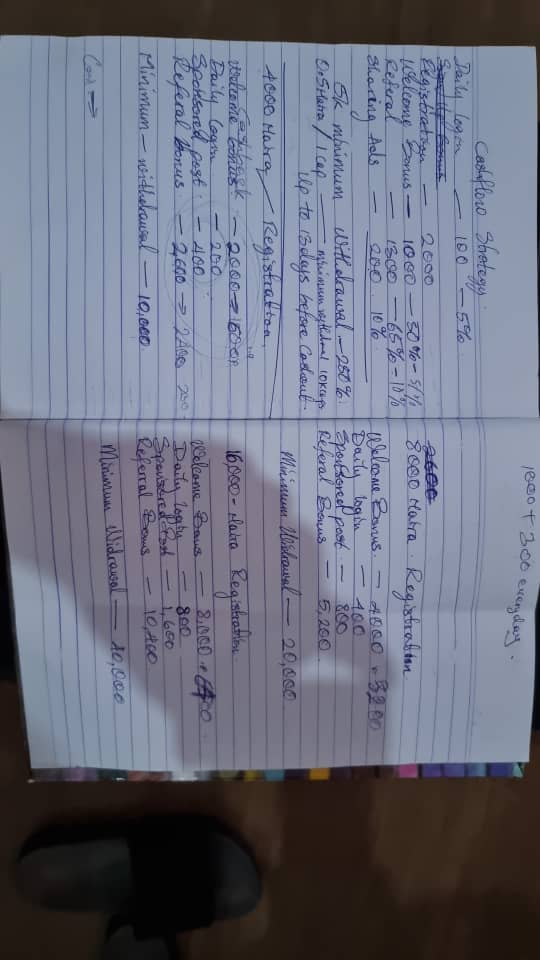 Cashflow Strategy.
Daily login — 100 — 5%
Registration — 2000
Welcome Bonus — 1000 — 50% — 5%
Referal — 1300 — 65% — 10%
Sharing Ads — 200 10%
5k minimum withdrawal — 250%
Up to 13days before Cashout.
4000 Naira / Registration
Cashback
Welcome bonus — 2000 →
Daily login — 200
Sponsored post — 400
Referal Bonus — 2,600 → 2400
Minimum — withdrawal — 10,000
1000 + 300 everyday.
8000 Naira. Registration
Welcome Bonus. — 4000 = 3200
Daily login — 400
Sponsored post — 800
Referal Bonus — 5,200
Minimum Withdrawal — 20,000
16,000 - Naira Registration
Welcome Bonus — 8,000
Daily login — 800
Sponsored Post — 1,600
Referal Bonus — 10,400
Minimum Widrawal — 40,000